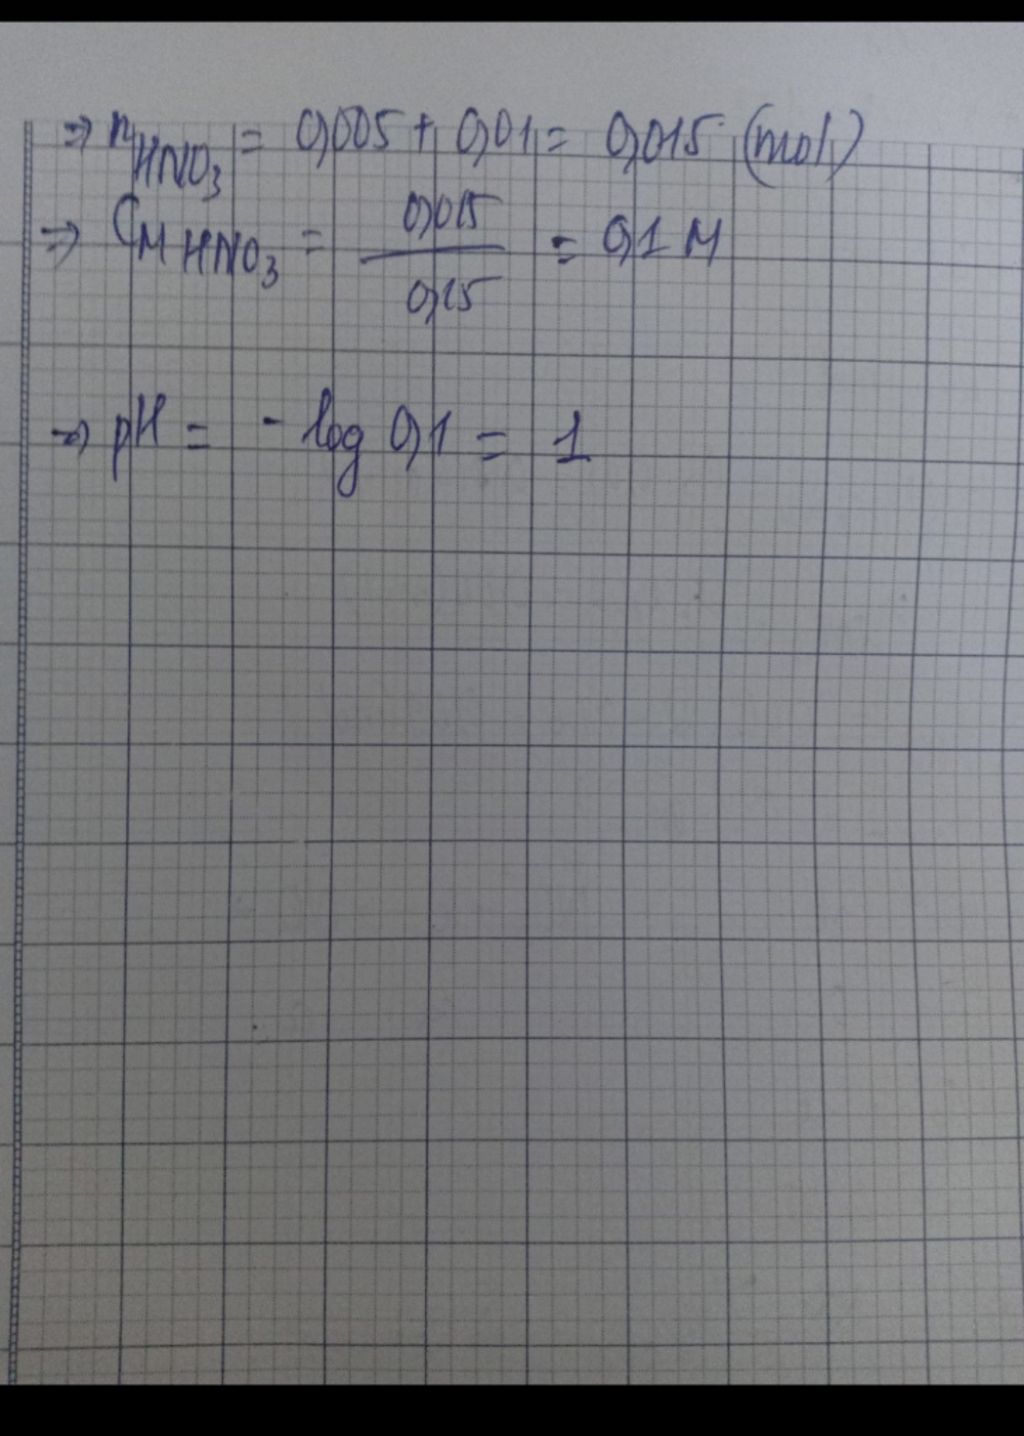 ⇒ nHNO3 = 0,005 + 0,01 = 0,015 (mol)
⇒ CM HNO3 = 0,015 / 0,15 = 0,1 M
→ pH = - log 0,1 = 1